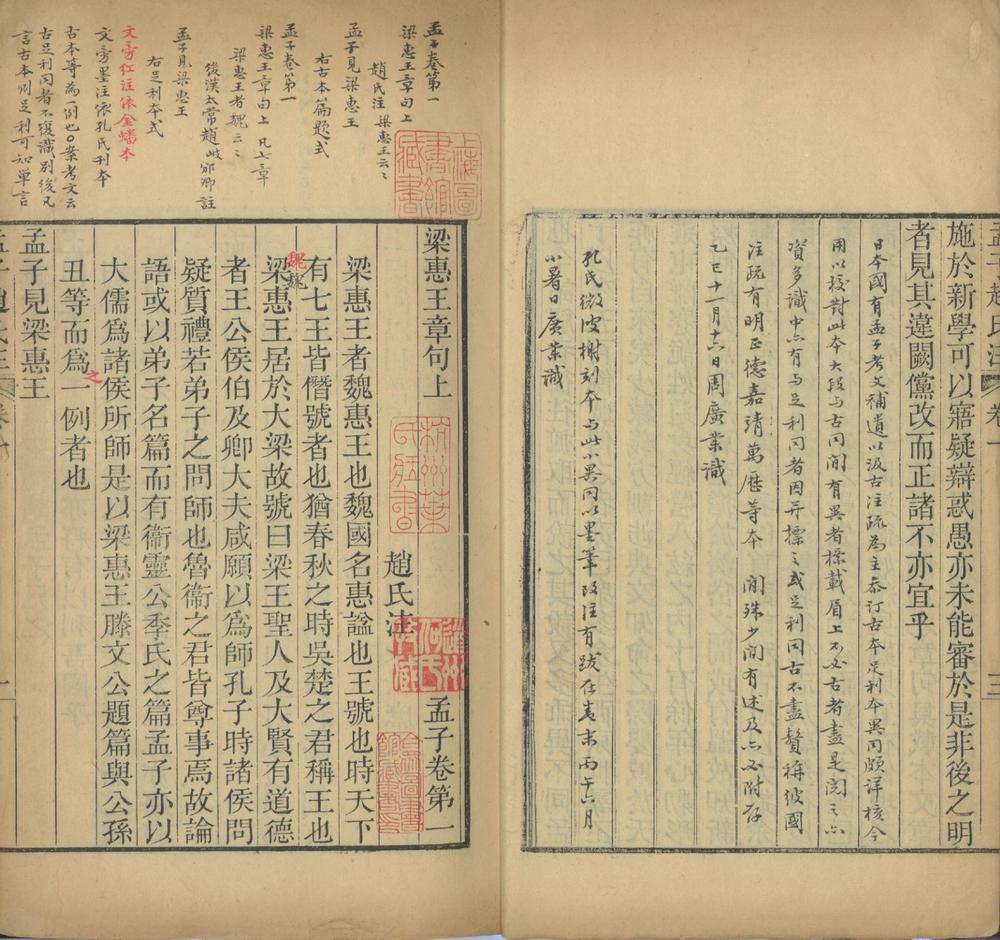 孟子趙氏注 卷一 三
施於新學可以寤疑辯惑愚亦未能審於是非後之明
者見其違闕儻改而正諸不亦宜乎
日本國有孟子考文補遺以汲古注疏為主参订古本足利本異同頗详核今
用以校對此本大段与古同間有異者標載眉上不必古者盡是閲之六
資多識中六有与足利同者因并標之或足利同古不盡贅稱彼國
注疏有明正德嘉清萬歷等本 間殊少間有述及六不附存
乙巳十一月十六日周廣業識
孔氏微波榭刻本与此小異同以墨筆改注有跋存卷末丙午六月
小暑日廣業識
孟子卷第一
梁惠王章句上
趙氏注 梁惠王云〻
孟子見梁惠王
右古本篇題式
孟子卷第一
梁惠王章句上 凡七章
梁惠王者魏云〻
後漢太常趙岐邠卿註
孟子見梁惠王
右足利本式
文旁红注依金蟠本
文旁墨注依孔氏刊本
古本等為一例也○案考文云
古足利同者不復識別後凡
言古本則足利可知單言
上海圖書館藏書
梁惠王章句上
杭州葉氏藏書
趙氏注 孟子卷第一
梁惠王者魏惠王也魏國名惠謚也王號也時天下
有七王皆僭號者也猶春秋之時吳楚之君稱王也
魏 魏
梁惠王居於大梁故號曰梁王聖人及大賢有道德
者王公侯伯及卿大夫咸願以為師孔子時諸侯問
疑質禮若弟子之問師也魯衞之君皆尊事焉故論
語或以弟子名篇而有衞靈公季氏之篇孟子亦以
大儒為諸侯所師是以梁惠王滕文公題篇與公孫
之
丑等而為一例者也
孟子見梁惠王
孟子趙氏注 卷一 一